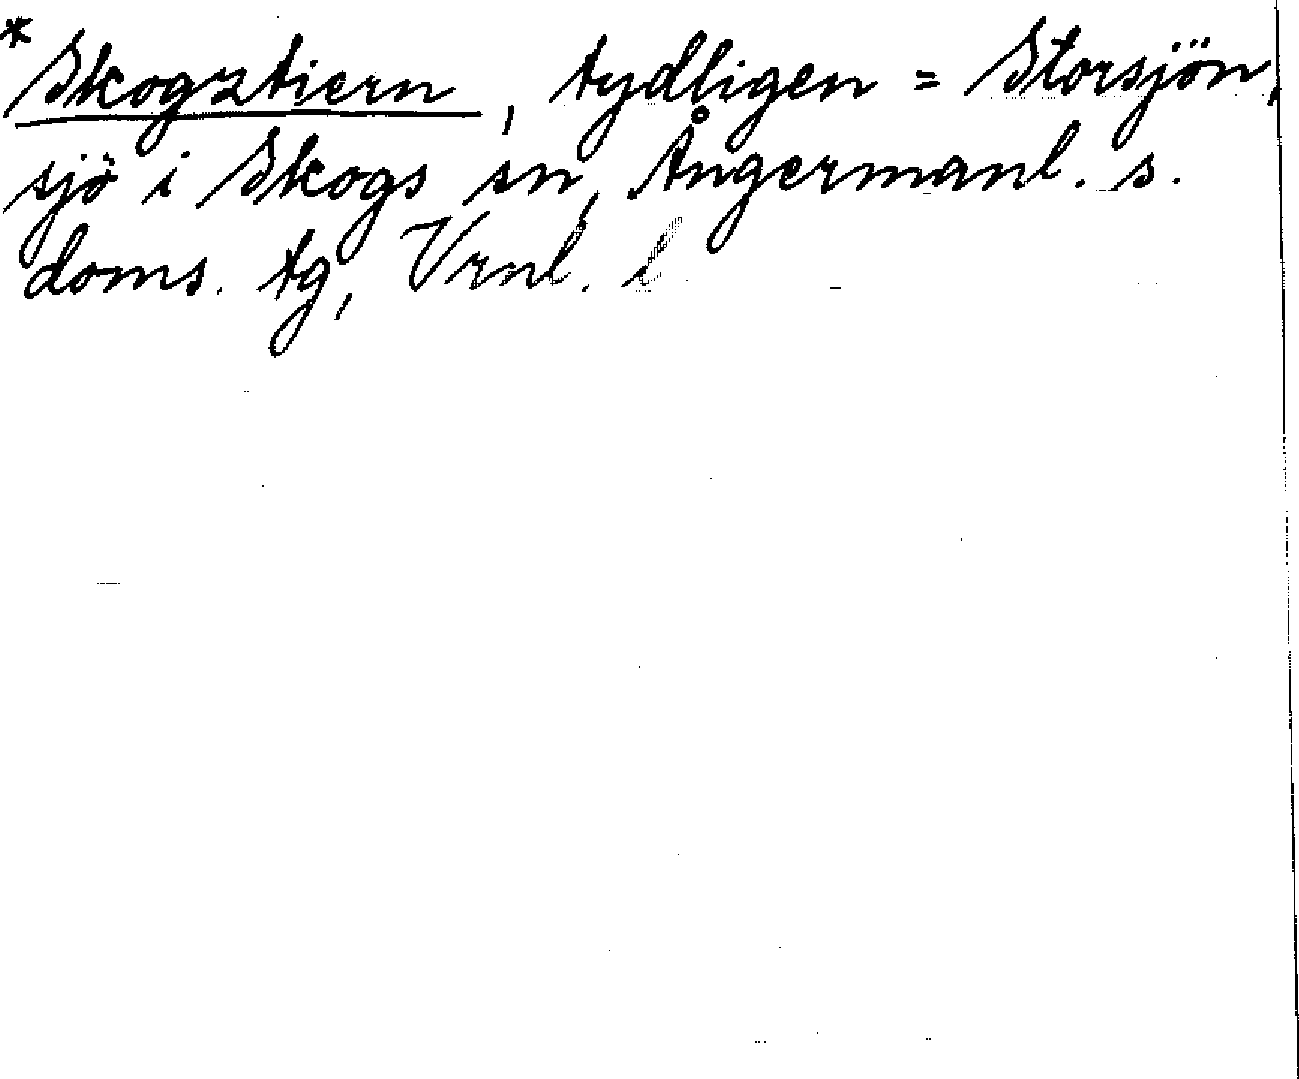 *Skogztiern, tydligen = Storsjön,
sjö i Skogs sn, Ångermanl. s.
doms. tg, Vrnl. l